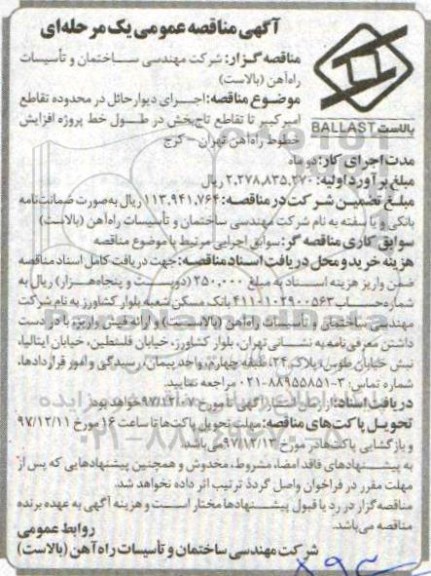 آگهی مناقصه عمومی یک مرحله‌ای
مناقصه گزار: شرکت مهندسی ساختمان و تأسیسات
راه‌آهن (بالاست)
موضوع مناقصه: اجرای دیوار حائل در محدوده تقاطع
امیرکبیر تا تقاطع تاج‌بخش در طول خط پروژه افزایش
خطوط راه‌آهن تهران – کرج
بالاست BALLAST
مدت اجرای کار: دو ماه
مبلغ برآورد اولیه: ۲,۲۷۸,۸۳۵,۲۷۰ ریال
مبلغ تضمین شرکت در مناقصه: ۱۱۳,۹۴۱,۷۶۴ ریال به‌صورت ضمانت‌نامه
بانکی و یا سفته به نام شرکت مهندسی ساختمان و تأسیسات راه‌آهن (بالاست)
سوابق کاری مناقصه گر: سوابق اجرایی مرتبط با موضوع مناقصه
هزینه خرید و محل دریافت اسناد مناقصه: جهت دریافت کامل اسناد مناقصه
ضمن واریز هزینه اسناد به مبلغ ۲۵۰,۰۰۰ (دویست و پنجاه هزار) ریال به
شماره حساب ۴۱۱۰۱۰۲۹۰۰۵۶۳ بانک مسکن شعبه بلوار کشاورز به نام شرکت
مهندسی ساختمان و تأسیسات راه‌آهن (بالاست) و ارائه فیش واریزی با در دست
داشتن معرفی‌نامه به نشانی تهران، بلوار کشاورز، خیابان فلسطین، خیابان ایتالیا،
نبش خیابان طوس، پلاک ۲۴، طبقه چهارم، واحد پیمان، رسیدگی و امور قراردادها،
شماره تماس: ۳-۸۸۹۵۵۸۵۱-۰۲۱ مراجعه نمایید.
دریافت اسناد: از زمان انتشار آگهی تا مورخ ۹۷/۱۲/۰۷ خواهد بود.
تحویل پاکت‌های مناقصه: مهلت تحویل پاکت‌ها تا ساعت ۱۶ مورخ ۹۷/۱۲/۱۱
و بازگشایی پاکت‌ها در مورخ ۹۷/۱۲/۱۳ می‌باشد.
به پیشنهادهای فاقد امضا، مشروط، مخدوش و همچنین پیشنهادهایی که پس از
مهلت مقرر در فراخوان واصل گردد ترتیب اثر داده نخواهد شد.
مناقصه‌گزار در رد یا قبول پیشنهادها مختار است و هزینه آگهی به عهده برنده
مناقصه می‌باشد.
روابط عمومی
شرکت مهندسی ساختمان و تأسیسات راه‌آهن (بالاست)